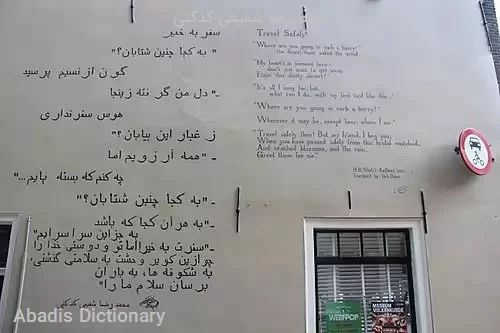 محمدرضا شفیعی کدکنی
سفر به خیر
"به کجا چنین شتابان؟"
گون از نسیم پرسید
ـ"دل من گرفته زینجا
هوس سفر نداری
ز غبار این بیابان؟"
ـ"همه آرزویم اما
چه کنم که بسته پایم..."
ـ"به کجا چنین شتابان؟"
ـ"به هر آن کجا که باشد
به جز این سرا سرایم"
ـ"سفرت به خیر! اما تو و دوستی خدا را
چو از این کویر وحشت به سلامتی گذشتی،
به شکوفه ها، به باران
برسان سلام ما را"
محمد رضا شفیعی کدکنی
Travel Safely!
"Where are you going in such a hurry?"
the broad-bean asked the wind.
"My heart's in torment here:
don't you want to get away
From this dusty desert?"
"It's all I long for, but,
what can I do, with my feet tied like this..."
"Where are you going in such a hurry?"
"Wherever it may be, except here, where I am."
"Travel safely then! But my friend, I beg you,
When you have passed safely from this brutal wasteland,
And reached blossoms, and the rain,
Greet them for me."
WERFPOP
MUSEUM
VOLKENKUNDE
Abadis Dictionary